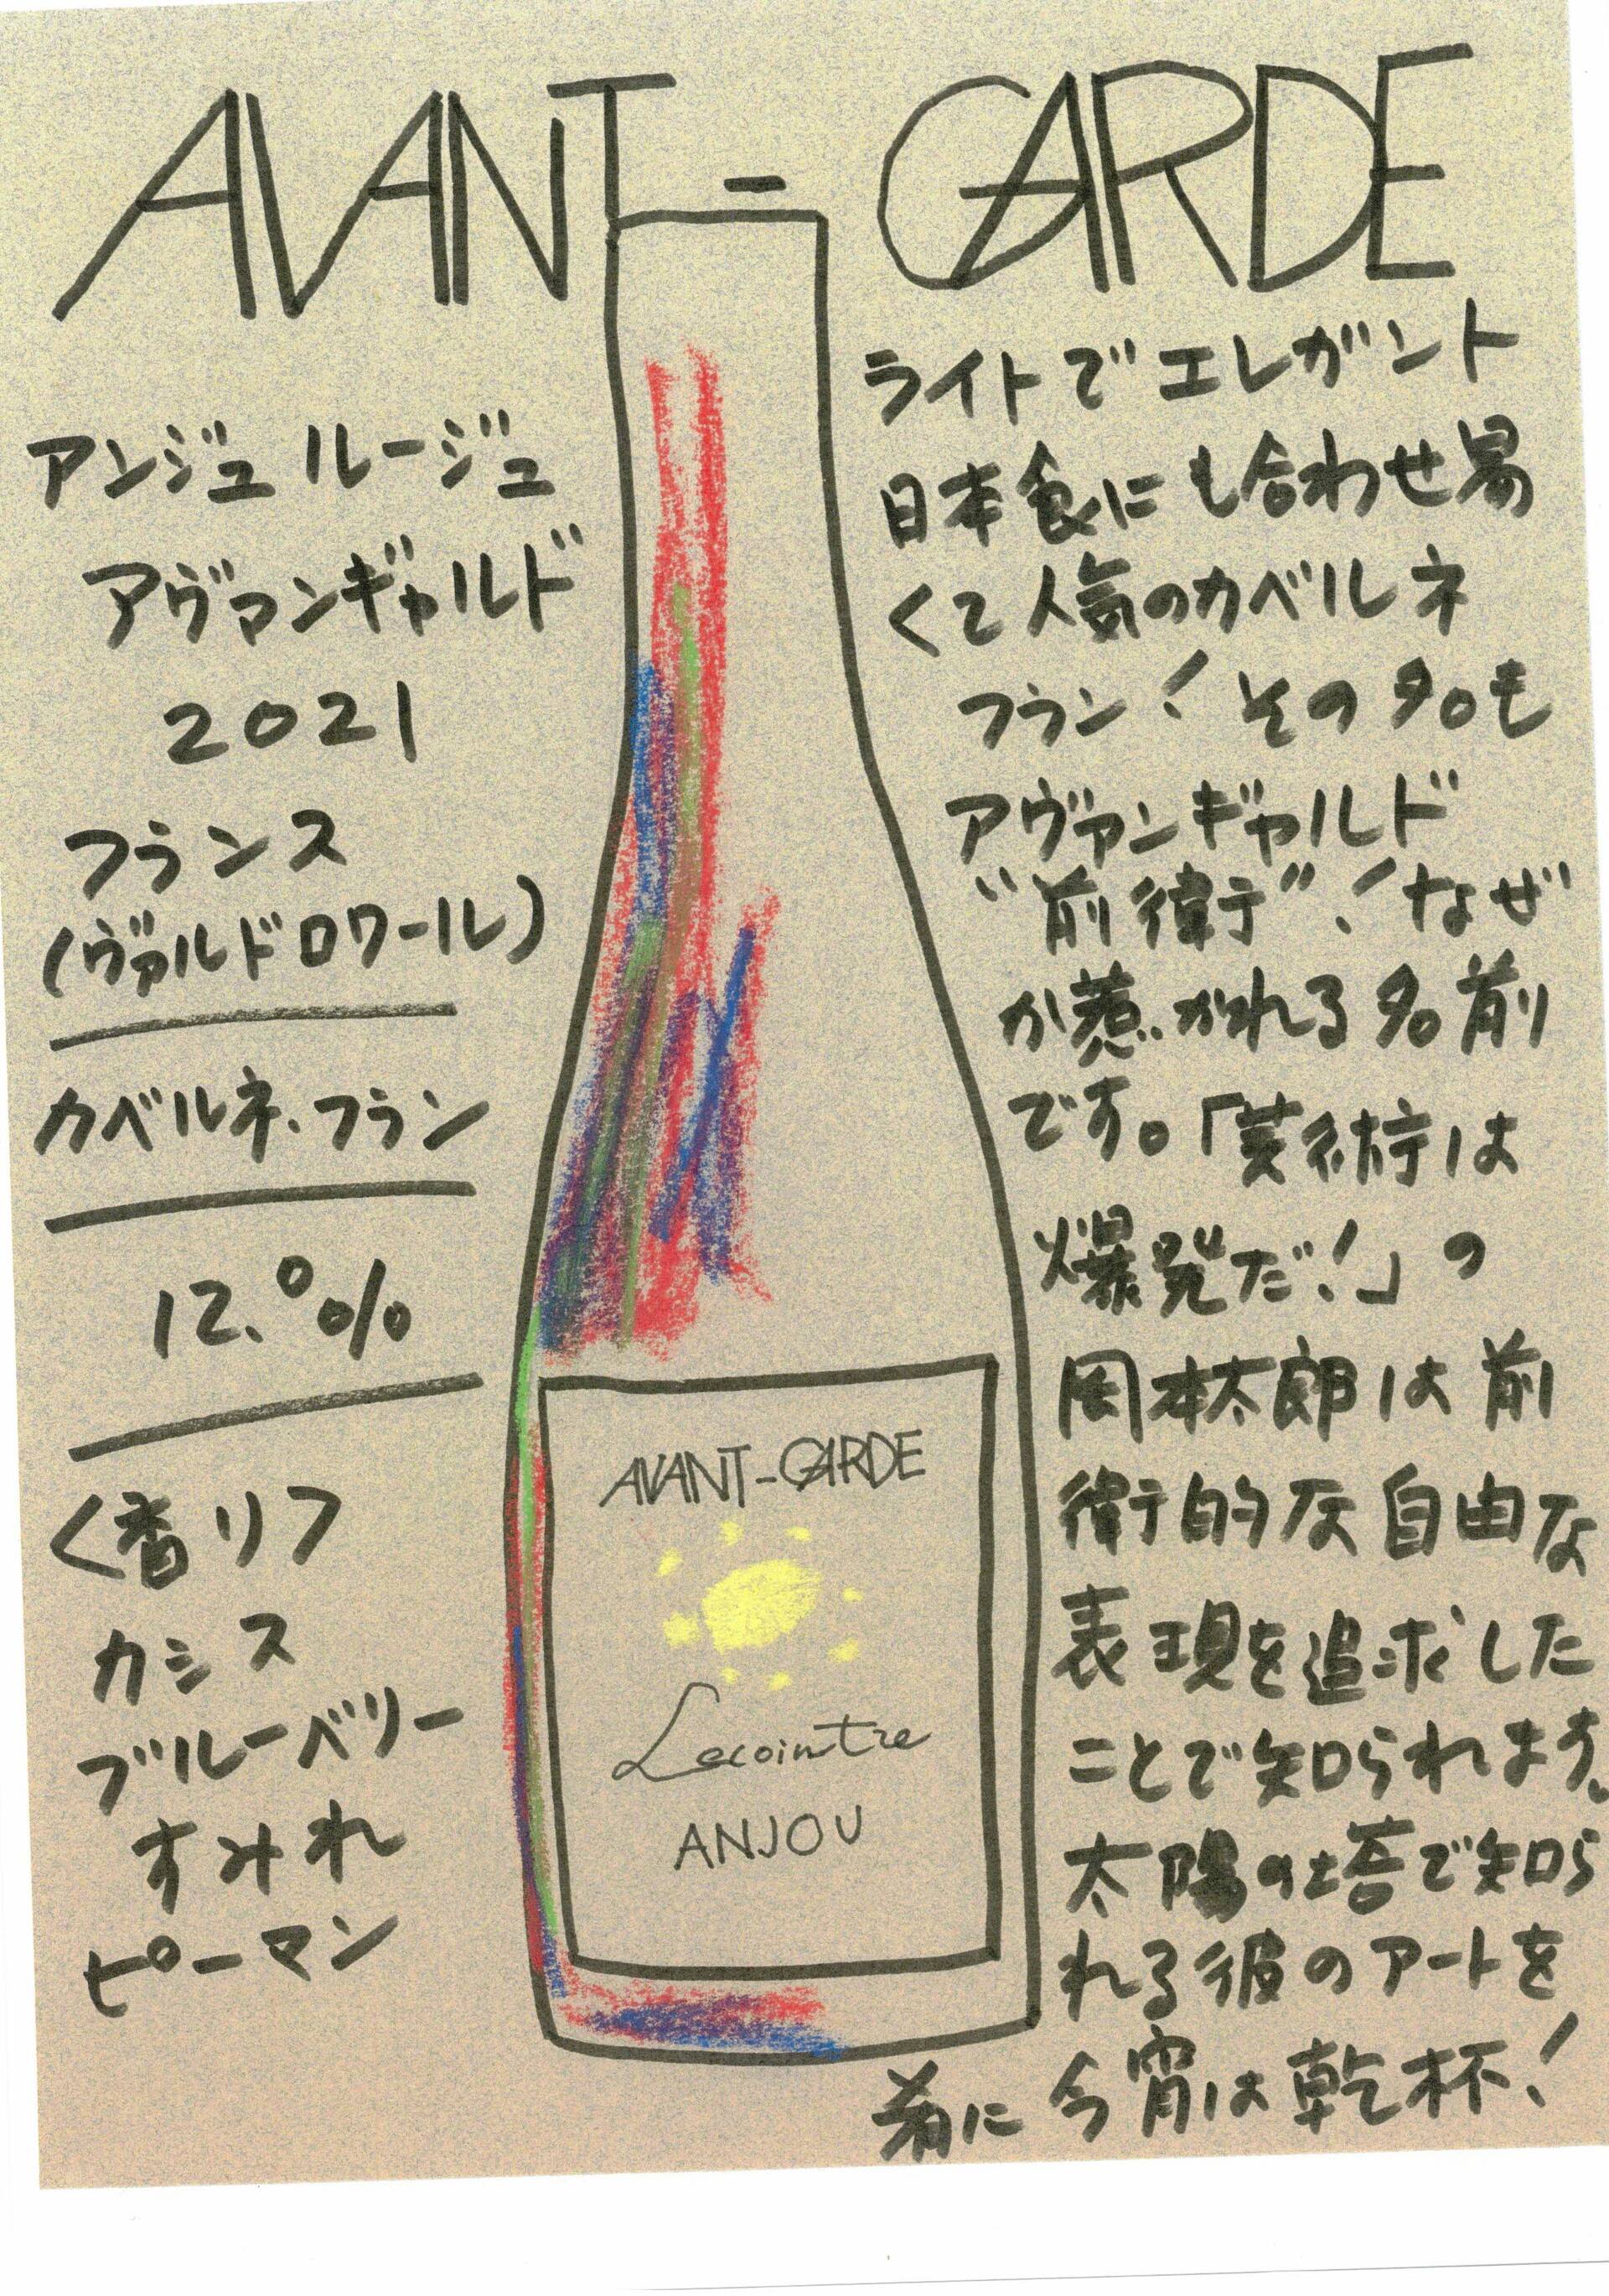 AVANT-GARDE
アンジュ ルージュ
アヴァンギャルド
2021
フランス
(ヴァルドロワール)
カベルネ・フラン
12.0%
<香り>
カシス
ブルーベリー
すみれ
ピーマン
AVANT-GARDE
Lecointre
ANJOU
ライトでエレガント
日本食にも合わせ易
くて人気のカベルネ
フラン！その名も
アヴァンギャルド
"前衛"！なぜ
か惹かれる名前
です。「芸術は
爆発だ！」の
岡本太郎は前
衛的な自由な
表現を追求した
ことで知られます。
太陽の塔で知ら
れる彼のアートを
肴に今宵は乾杯！